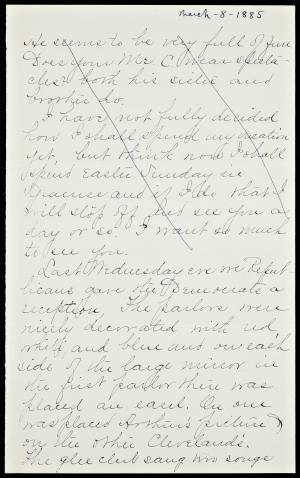 March-8-1885
He seems to be very full of fun
Does your Mr. C. wear specta-
cles? both his sister and
brother do.
I have not fully decided
how I shall spend my vacation
yet, but think now I shall
spend Easter Sunday in
Syracuse and if I do that I
will stop off and see you a
day or so. I want so much
to see you.
Last Wednesday eve we Repub-
licans gave the Democrats a
reception. The parlors were
nicely decorated with red,
white, and blue and on each
side of the large mirror in
the first parlor there was
placed an easel. On one
was placed Arthur's picture &
on the other Cleveland's.
The glee club sang two songs